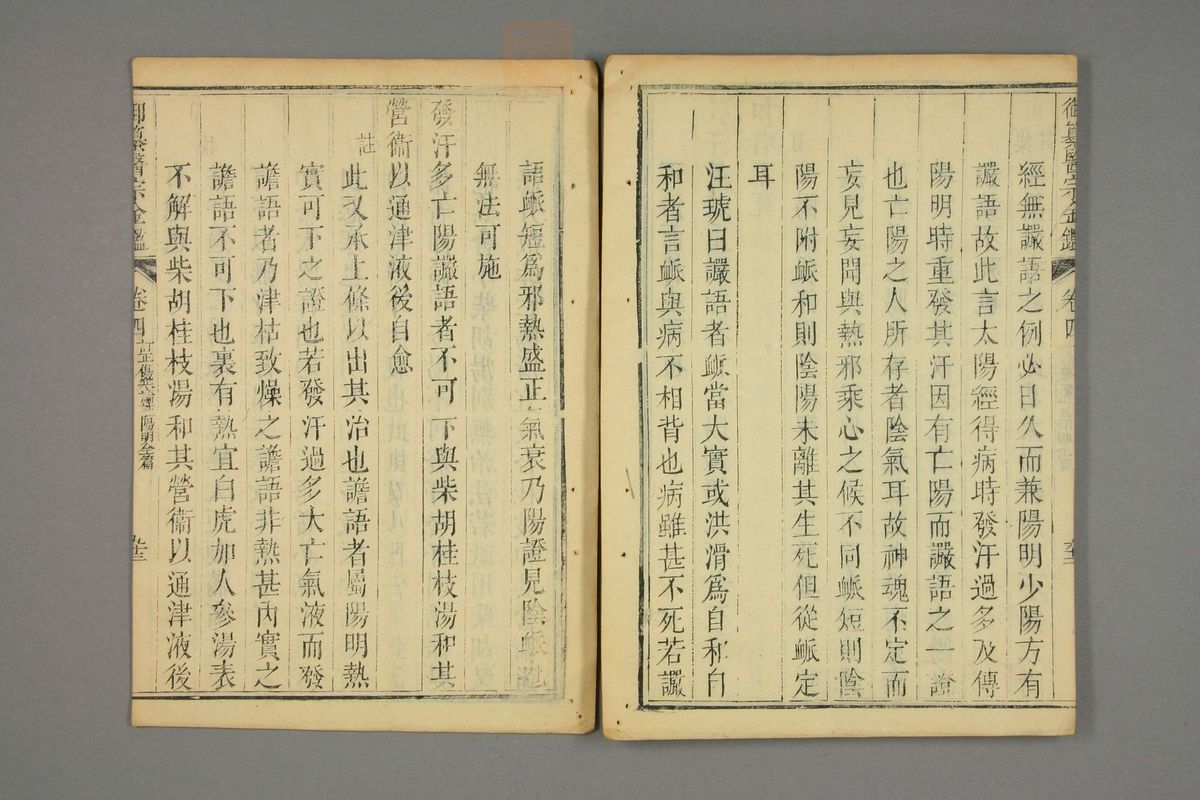 御纂醫宗金鑑 卷四 六十三
經無讝語之例必日久而兼陽明少陽方有
讝語故此言太陽經得病時發汗過多及傳
陽明時重發其汗因有亡陽而讝語之一證
也亡陽之人所存者陰氣耳故神魂不定而
妄見妄聞與熱邪乘心之候不同脈短則陰
陽不附脈和則陰陽未離其生死但從脈定
耳
汪琥曰讝語者脈當大實或洪滑爲自和自
和者言脈與病不相背也病雖甚不死若讝
語脈短爲邪熱盛正氣衰乃陽證見陰脈也
無法可施
發汗多亡陽讝語者不可下與柴胡桂枝湯和其
營衞以通津液後自愈
註 此又承上條以出其治也譫語者屬陽明熱
實可下之證也若發汗過多大亡氣液而發
譫語者乃津枯致燥之譫語非熱甚內實之
譫語不可下也裏有熱宜白虎加人參湯表
不解與柴胡桂枝湯和其營衞以通津液後
御纂醫宗金鑑 卷四 陽明全篇